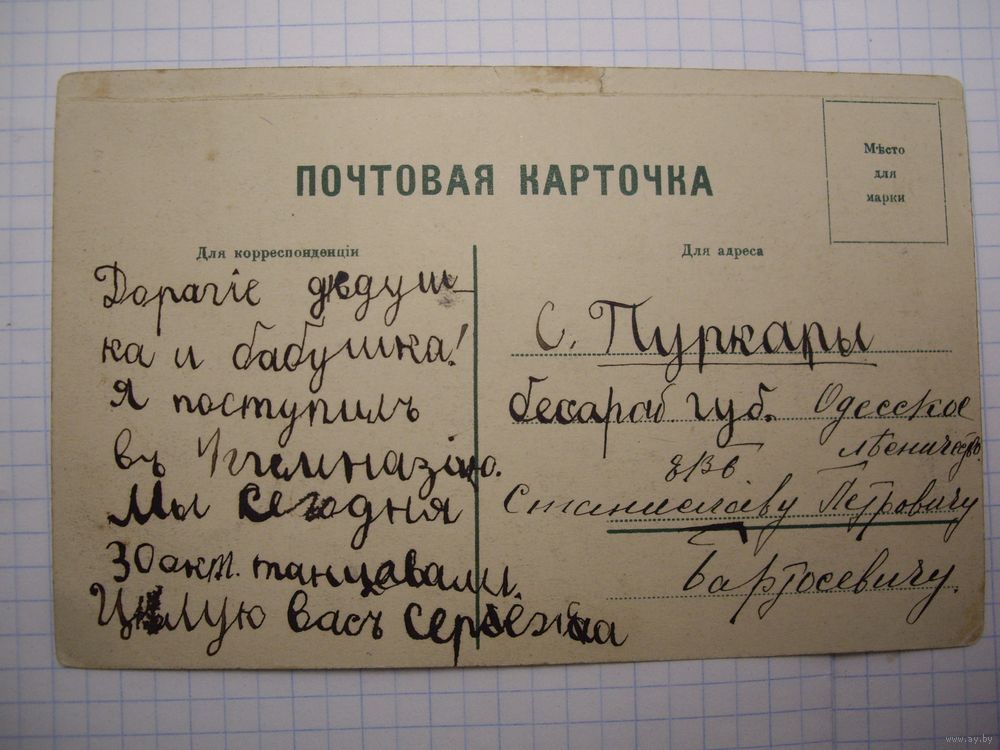 ПОЧТОВАЯ КАРТОЧКА
Мѣсто
для
марки
Для корреспонденціи
Дорагіе дѣдуш-
ка и бабушка!
Я поступилъ
въ гемназію.
Мы сегодня
30 окт. танцавали.
Цѣлую васъ Серёжа
Для адреса
С. Пуркары
бесараб губ. Одесское
лѣсничество
ЕВБ
Станиславу Петровичу
Бартосевичу.
www.ay.by